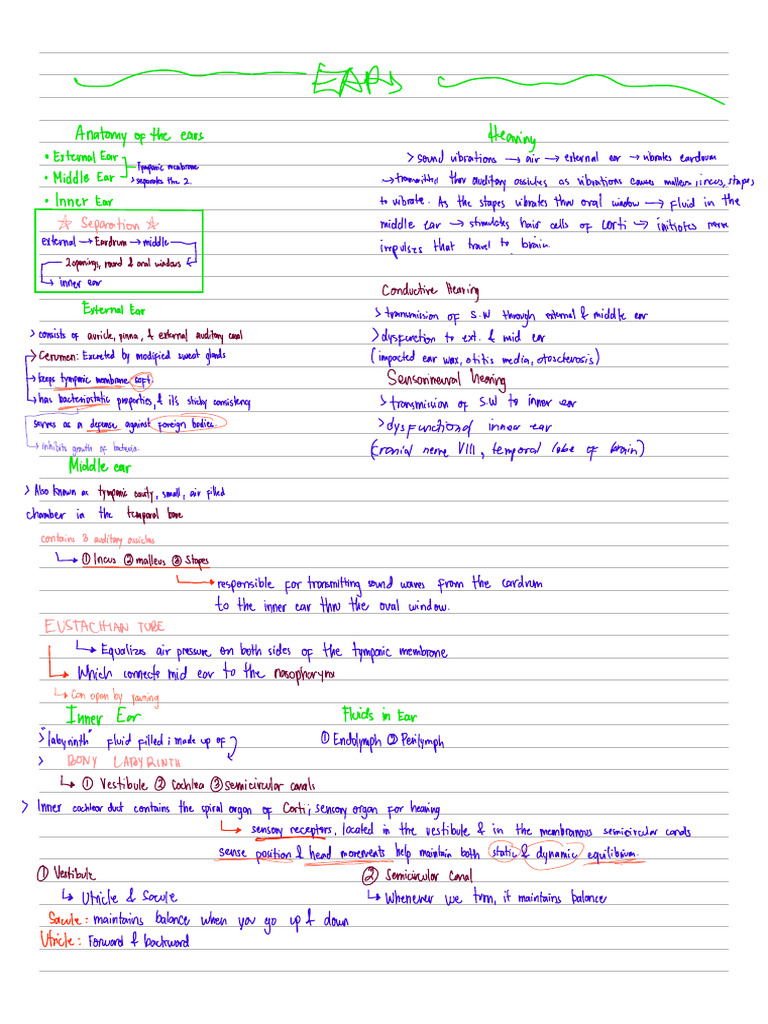 EARS
Anatomy of the ears
• External Ear
• Middle Ear
Tympanic membrane
> separates the 2.
• Inner Ear
☆ Separation ☆
external → Eardrum → middle
2 openings, round & oval windows
→ inner ear
External Ear
> consists of auricle, pinna, & external auditory canal
> Cerumen: Excreted by modified sweat glands
→ keeps tympanic membrane soft
→ has bacteriostatic properties, & it's sticky consistency
serves as a defense against foreign bodies.
→ inhibits growth of bacteria.
Middle ear
> Also known as tympanic cavity, small, air filled
chamber in the temporal bone
contains 3 auditory ossicles
→ ① Incus ② malleus ③ Stapes
→ responsible for transmitting sound waves from the eardrum
to the inner ear thru the oval window.
EUSTACHIAN TUBE
→ Equalizes air pressure on both sides of the tympanic membrane
→ Which connects mid ear to the nasopharynx
→ Can open by yawning
Inner Ear
> "labyrinth" fluid filled ; made up of
> BONY LABYRINTH
→ ① Vestibule ② Cochlea ③ Semicircular canals
> Inner cochlear duct contains the spiral organ of Corti; sensory organ for hearing
→ sensory receptors, located in the vestibule & in the membranous semicircular canals
sense position & head movements help maintain both static & dynamic equilibrium.
① Vestibule
→ Utricle & Sacule
Sacule: maintains balance when you go up & down
Utricle: Forward & backward
Hearing
> sound vibrations → air → external ear → vibrates eardrum
→ transmitted thru auditory ossicles as vibrations causes malleus, incus, stapes
to vibrate. As the stapes vibrates thru oval window → fluid in the
middle ear → stimulates hair cells of corti → initiates nerve
impulses that travel to brain.
Conductive Hearing
> transmission of S.W through external & middle ear
> dysfunction to ext. & mid ear
(impacted ear wax, otitis media, otosclerosis)
Sensorineural hearing
> transmission of S.W to inner ear
> dysfunction of inner ear
(cranial nerve VIII, temporal lobe of brain)
Fluids in Ear
① Endolymph ② Perilymph
② Semicircular Canal
→ Whenever we turn, it maintains balance